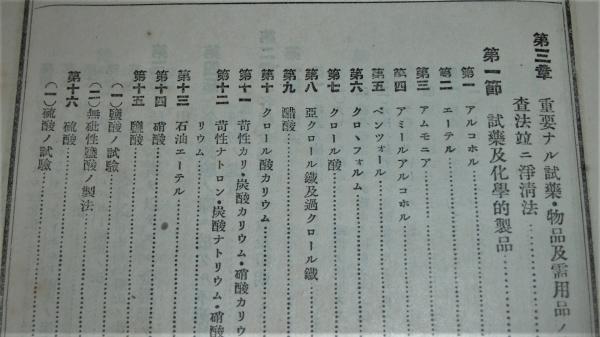 第三章 重要ナル試藥・物品及需用品ノ
査法竝ニ淨淸法
第一節 試藥及化學的製品
第一 アルコホル
第二 エーテル
第三 アムモニア
第四 アミールアルコホル
第五 ベンツォール
第六 クロヽフォルム
第七 クロール酸
第八 亞クロール鐵及過クロール鐵
第九 醋酸
第十 クロール酸カリウム
第十一 苛性カリ・炭酸カリウム・硝酸カリウ
第十二 苛性ナトロン・炭酸ナトリウム・硝酸
リウム
第十三 石油エーテル
第十四 硝酸
第十五 鹽酸
(一)鹽酸ノ試驗
(二)無砒性鹽酸ノ製法
第十六 硫酸
(一)硫酸ノ試驗